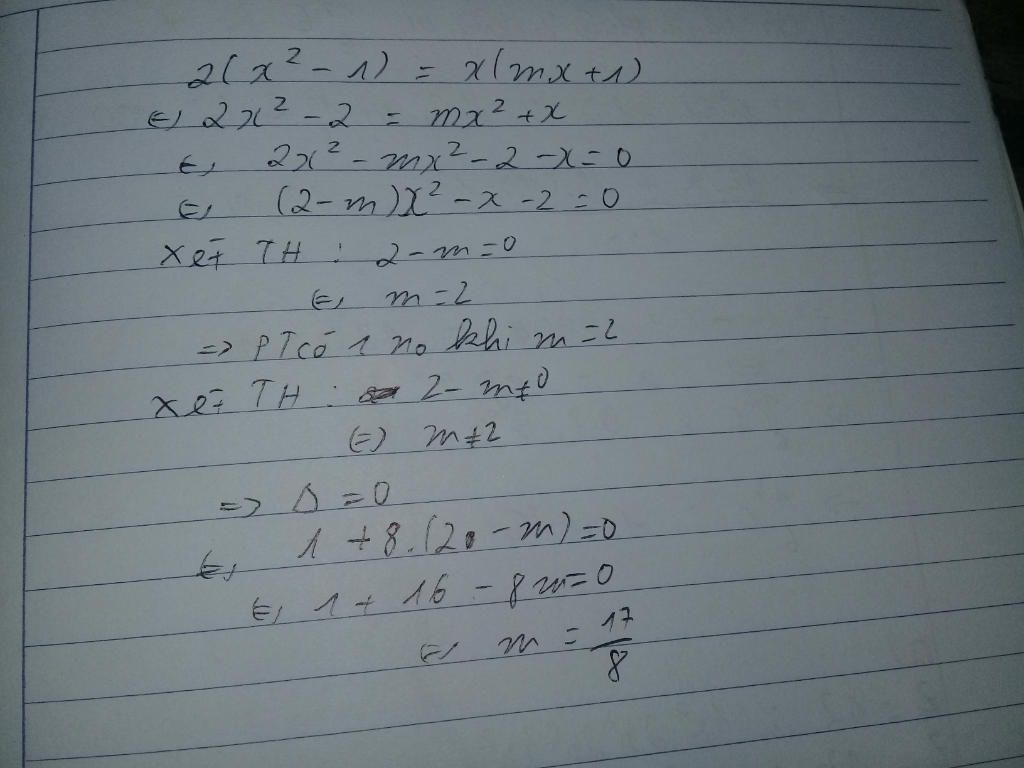 2(x² - 1) = x(mx + 1)
⇔ 2x² - 2 = mx² + x
⇔ 2x² - mx² - 2 - x = 0
⇔ (2 - m)x² - x - 2 = 0
Xét TH : 2 - m = 0
⇔ m = 2
=> PT có 1 no khi m = 2
Xét TH : 2 - m ≠ 0
⇔ m ≠ 2
=> Δ = 0
⇔ 1 + 8.(2 - m) = 0
⇔ 1 + 16 - 8m = 0
⇔ m = 17/8